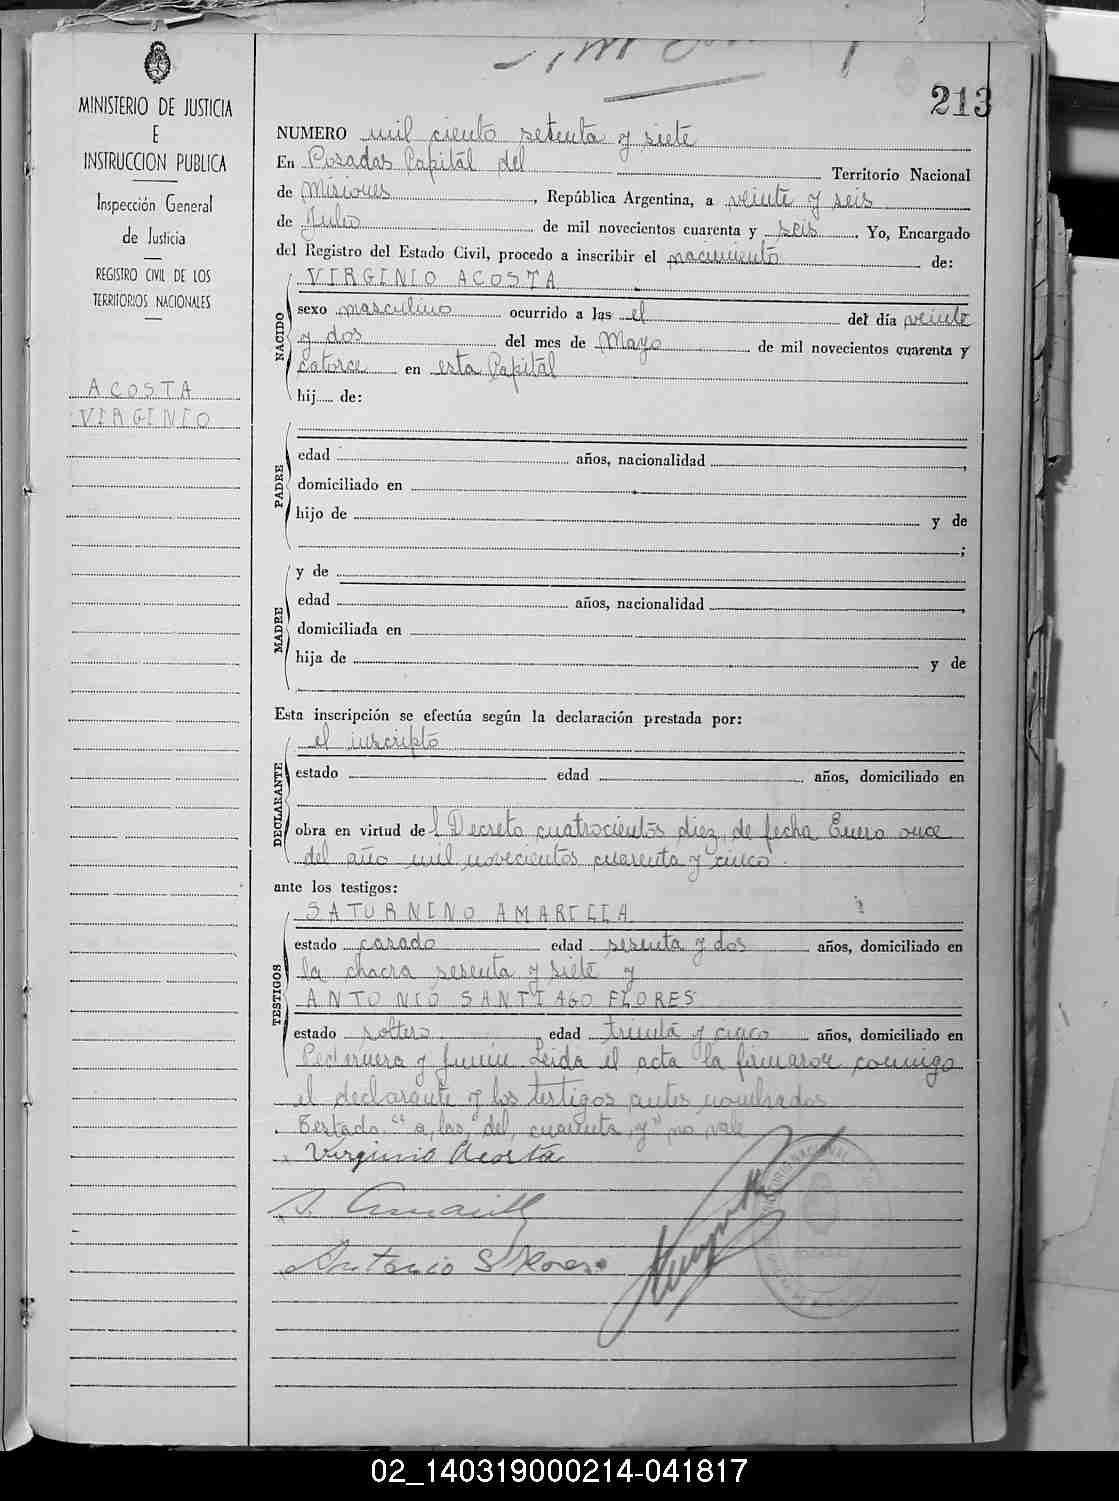 213
MINISTERIO DE JUSTICIA
E
INSTRUCCION PUBLICA
Inspección General
de Justicia
REGISTRO CIVIL DE LOS
TERRITORIOS NACIONALES
ACOSTA
VIRGINIO
NUMERO mil ciento setenta y siete
En Posadas Capital del Territorio Nacional
de Misiones, República Argentina, a veinte y seis
de Julio de mil novecientos cuarenta y seis. Yo, Encargado
del Registro del Estado Civil, procedo a inscribir el nacimiento de:
VIRGINIO ACOSTA
NACIDO
sexo masculino ocurrido a las el del día veinte
y dos del mes de Mayo de mil novecientos cuarenta y
catorce en esta Capital
hij..... de:
PADRE
edad años, nacionalidad ,
domiciliado en
hijo de y de
;
MADRE
y de
edad años, nacionalidad ,
domiciliada en
hija de y de
Esta inscripción se efectúa según la declaración prestada por:
el inscripto
DECLARANTE
estado edad años, domiciliado en
obra en virtud del Decreto cuatrocientos diez, de fecha Enero once
del año mil novecientos cuarenta y cinco.
ante los testigos:
SATURNINO AMARILLA
TESTIGOS
estado casado edad sesenta y dos años, domiciliado en
la chacra sesenta y siete y
ANTONIO SANTIAGO FLORES
estado soltero, edad treinta y cinco años, domiciliado en
y Junín Leida el acta la firmaron conmigo
el declarante y los testigos antes nombrados
Testado "a, las" del, cuarenta, y" no vale
Virginio Acosta
S. Amarilla
Antonio S Flores
02_140319000214-041817